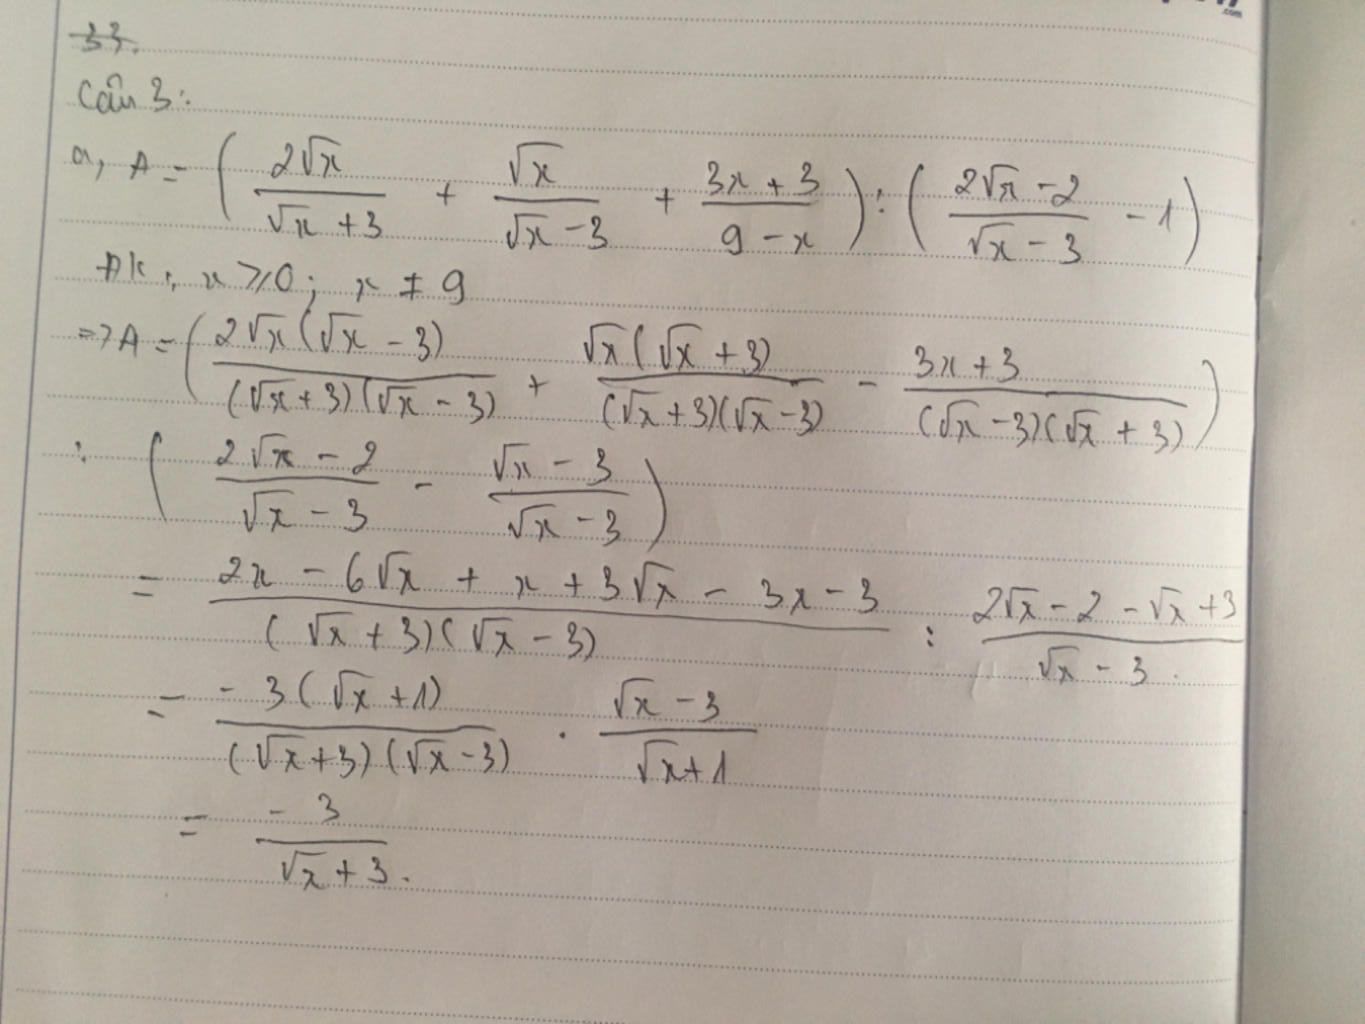 33.
Câu 3:
a, A = ( 2√x / (√x + 3) + √x / (√x - 3) + (3x + 3) / (9 - x) ) : ( (2√x - 2) / (√x - 3) - 1 )
ĐK: x ≥ 0; x ≠ 9
=> A = ( 2√x (√x - 3) / (√x + 3)(√x - 3) + √x (√x + 3) / (√x + 3)(√x - 3) - (3x + 3) / (√x - 3)(√x + 3) )
: ( (2√x - 2) / (√x - 3) - (√x - 3) / (√x - 3) )
= (2x - 6√x + x + 3√x - 3x - 3) / (√x + 3)(√x - 3) : (2√x - 2 - √x + 3) / (√x - 3).
= -3(√x + 1) / (√x + 3)(√x - 3) . (√x - 3) / (√x + 1)
= -3 / (√x + 3).